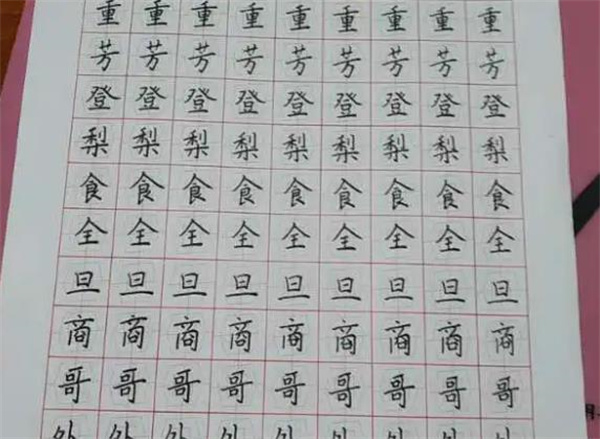 重重重重重重重重重
芳芳芳芳芳芳芳芳芳
登登登登登登登登登
梨梨梨梨梨梨梨梨梨
食食食食食食食食食
全全全全全全全全全
旦旦旦旦旦旦旦旦旦
商商商商商商商商商
哥哥哥哥哥哥哥哥哥
外外外外外外外外外